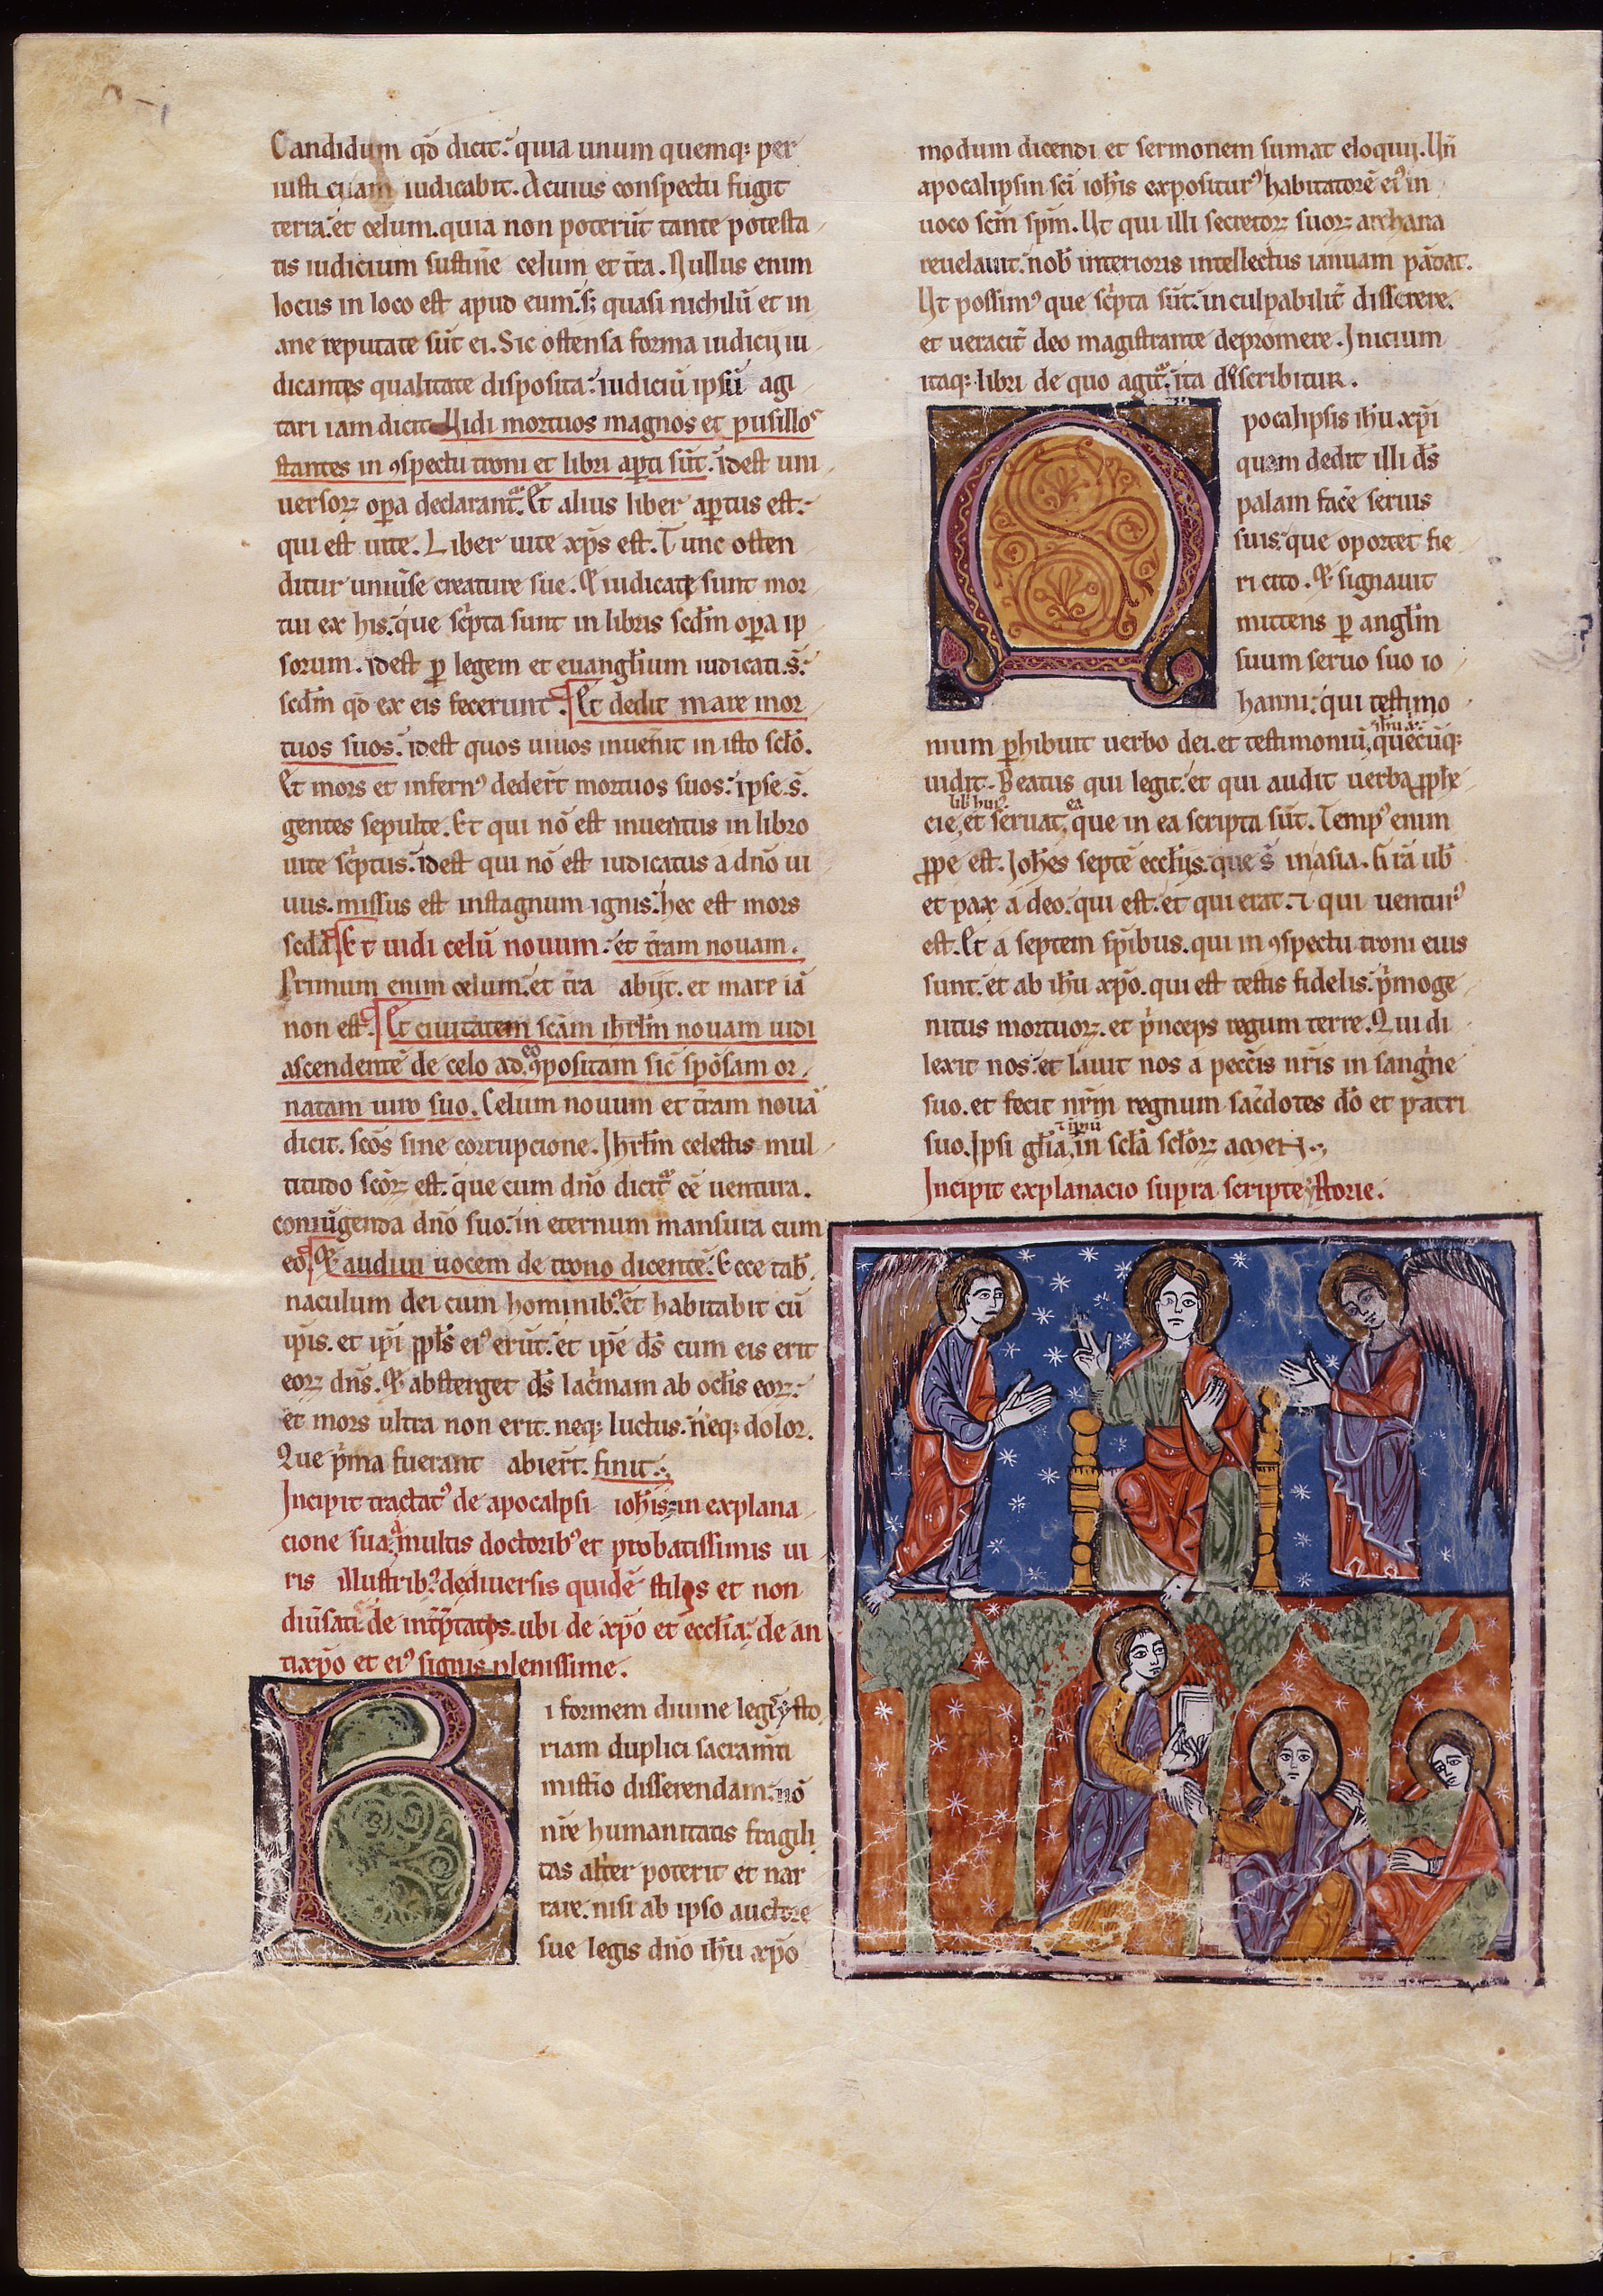 Candidum qd̄ dicit: quia unum quemq; per
iusti etiam iudicabit. A cuius conspectu fugit
terra: et celum. quia non poterūt tante potesta
tis iudicium sustine celum et tr̄a. Nullus enim
locus in loco est apud eum: s; quasi nichilū et in
ane reputate sūt ei. Sic ostensa forma iudicij iu
dicantes qualitate disposita: iudiciū ipsū agi
tari iam dicit. Uidi mortuos magnos et pusillos
stantes in ꝯspectu troni et libri ap̄ti sūt. idest uni
uersoꝝ oꝑa declarant᷑. Et alius liber aꝑtus est:
qui est uite. Liber uite xp̄s est. Tunc osten
ditur uniūse creature sue. Et iudicati sunt mor
tui ex his: que sc̄pta sunt in libris scdm̄ oꝑa ip
sorum. idest ꝑ legem et euangl̄ium iudicati s̄:
scdm̄ qd̄ ex eis fecerunt. Et dedit mare mor
tuos suos: idest quos uiuos inuenīt in isto scl̄o.
Et mors et infernꝰ dedert̄ mortuos suos: ipse s̄.
gentes sepulte. Et qui nō est inuentus in libro
uite sc̄ptus: idest qui nō est iudicatus a dn̄o ui
uus. missus est instagnum ignis: hec est mors
scdā Et uidi celū nouum: et tr̄am nouam.
Primum enim celum: et tr̄a abijt. et mare iā
non est. Et ciuitatem scām ihrl̄m nouam uidi
ascendentē de celo ad eo ꝯpositam sic̄ spōsam or
natam uiro suo. Celum nouum et tr̄am nouā
dicit. scōs sine corrupcione. Ihrl̄m celestis mul
titudo scōꝝ est. que cum dn̄o dicit᷑ eē uentura.
coniūgenda dn̄o suo: in eternum mansura cum
eo. Et audiui uocem de trono dicentē: Ecce tab̄
naculum dei cum hominibꝰ et habitabit cū
ip̄is. et ip̄i ppl̄s eiꝰ erūt: et ip̄e d̄s cum eis erit
eoꝝ dn̄s. Et absterget d̄s lac̄mam ab ocl̄is eoꝝ:
et mors ultra non erit. neq; luctus. neq; dolor.
Que p̄ma fuerant abiert̄. finit.
Incipit tractatꝰ de apocalpsi ioh̄is in explana
cione sua: a multis doctoribꝰ et probatissimis ui
ris illustribꝰ: dediuersis quidē stilos et non
diūsati de int̄p̄tatos. ubi de xp̄o et eccl̄ia: de an
tixp̄o et eiꝰ signis plenissime.
B
i formem diuine legis ysto
riam duplici sacram̄ti
mist̄io disserendam: nō
nr̄e humanitatis fragili
tas alit̄er poterit et nar
rare. nisi ab ipso auctore
sue legis dn̄o ihū xp̄o
modum dicendi et sermonem sumat eloquij. Un̄
apocalipsin sc̄i ioh̄is exposituꝝ habitatorē eiꝰ in
uoco scm̄ spm̄. Ut qui illi secretoꝝ suoꝝ archana
reuelauit: nob̄ interioris intellectus ianuam pādat.
Ut possimꝰ que sc̄pta sūt: inculpabilit̄ disserere.
et ueracit̄ deo magistrante depromere. Inicium
itaq; libri de quo agit᷑: ita describitur.
A
pocalipsis ihū xp̄i
quam dedit illi d̄s
palam facē seruis
suis: que oportet fie
ri cito. Et signauit
mittens ꝑ angl̄m
suum seruo suo io
hanni: qui testimo
ihū x̄.
nium ꝑhibuit uerbo dei. et testimoniū, quecūq;
uidit. Beatus qui legit: et qui audit uerba ꝓph̄e
lib̄ huiꝰ ea
cie, et seruat, que in ea scripta sūt. Tempꝰ enim
ꝓpe est. Ioh̄es septē eccl̄ijs: que s̄ inasia. Gr̄a ub̄
et pax a deo. qui est: et qui erat. ⁊ qui uenturꝰ
est. Et a septem sp̄ibus. qui in ꝯspectu troni eius
sunt: et ab ihū xp̄o. qui est testis fidelis: p̄moge
nitus mortuoꝝ. et p̄nceps regum terre. Qui di
lexit nos: et lauit nos a pecc̄is nr̄is in sanḡne
suo. et fecit nr̄m regnum sac̄dotes dō et patri
⁊ impiū
suo. Ipsi gl̄ia, in scl̄a scl̄oꝝ amen.
Incipit explanacio supra scripte ystorie.